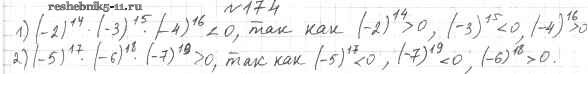 reshebnik5-11.ru
№174
1) (-2)^14 · (-3)^15 · (-4)^16 < 0, так как (-2)^14 > 0, (-3)^15 < 0, (-4)^16 > 0
2) (-5)^17 · (-6)^18 · (-7)^19 > 0, так как (-5)^17 < 0, (-7)^19 < 0, (-6)^18 > 0.